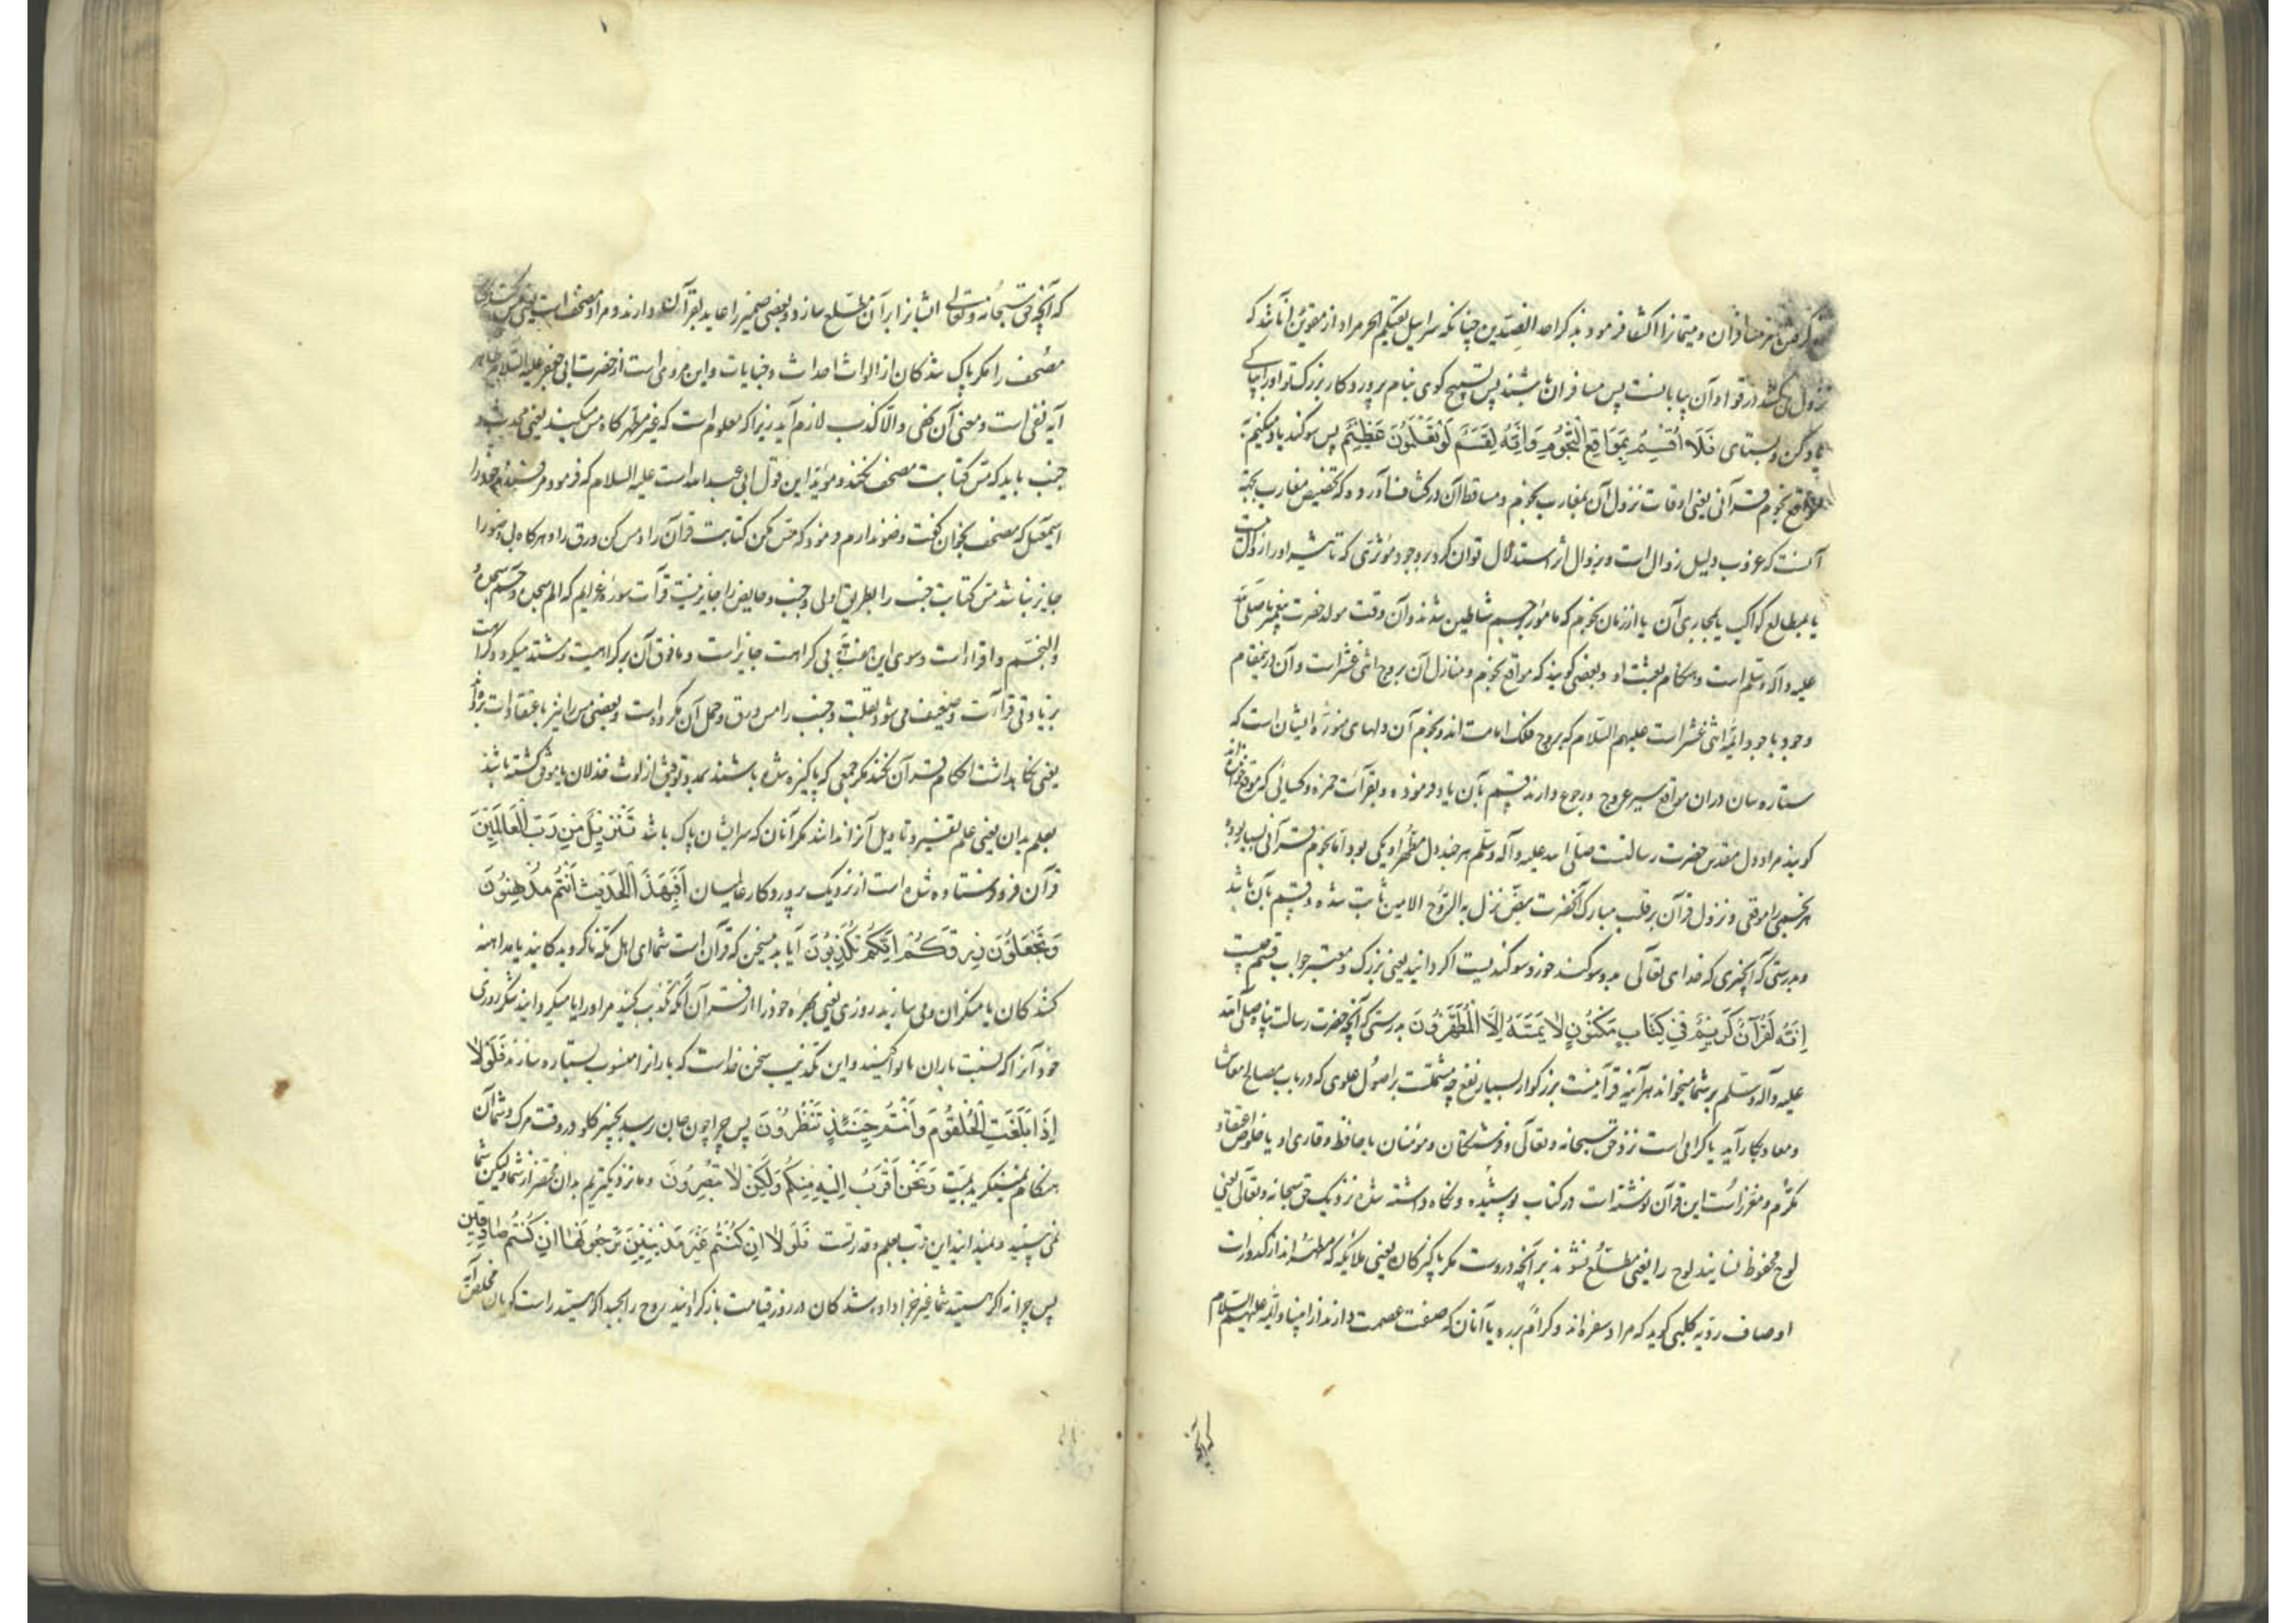 مسافران و متمتعانرا اکتفا فرمود بذکر احد الضدین چنانکه سرابیل تقیکم الحر مراد از مقوین آنانند که
نزول کنند در قوا و آن بیابانست پس مسافران باشند پس تسبیح کوی بنام پروردکار بزرک تو او را بپاکی
یاد کن و بستای فَلَا اُقْسِمُ بِمَوَاقِعِ النُّجُومِ وَاِنَّهُ لَقَسَمٌ لَوْ تَعْلَمُونَ عَظِیمٌ پس سوکند یاد میکنیم
بمواقع نجوم قرآنی یعنی اوقات نزول آن بمغارب نجوم و مساقط آن در کشاف آورده که تخصیص مغارب بجهة
آنست که غروب دلیل زوال است و بزوال اثر استدلال توان کرد بر وجود مؤثری که تاثیر او را زوال نیست
یا بمطالع کواکب یا بمجاری آن یا از زمان نجوم که مامور برجم شیاطین شدند و آن وقت مولد حضرت پیغمبر صلی الله
علیه و آله و سلم است و هنکام بعثت او و بعضی کویند که مواقع نجوم و منازل آن بروج اثنی عشر است و آن درینمقام
وجود باجود ائمه اثنی عشر است علیهم السلام که بروج فلک امامت اند و نجوم آن دلهای منوره ایشان است که
ستاره سان دران مواقع سیر عروج و رجوع دارند قسم بآن یاد فرموده و بقرآئت حمزه و کسایی که موقع خوانده اند
کویند مراد دل مقدس حضرت رسالتست صلی الله علیه و آله و سلم هر چند دل مطهر او یکی بود اما نجوم قرآنی بسیار بوده
هر نجمی را موقعی و نزول قرآن بر قلب مبارک آنحضرت بنص نزل به الروح الامین ثابت شده و قسم بآن باشد
و بدرستی که آنچیزی که خدای تعالی بدو سوکند خورد سوکندیست اکر دانید یعنی بزرک و معتبر جواب قسم چیست
اِنَّهُ لَقُرْآنٌ کَرِیمٌ فِی کِتَابٍ مَکْنُونٍ لَا یَمَسُّهُ اِلَّا الْمُطَهَّرُونَ بدرستی که آنچه حضرت رسالت پناه صلی الله
علیه و آله و سلم بر شما میخواند هر آینه قرآنیست بزرکوار بسیار نفع چه مشتملست بر اصول علومی که در باب مصالح معاش
و معاد بکار آید یا کرامی است نزد حق سبحانه و تعالی و فرشتکان و مومنان یا حافظ و قاری او با خلوص اعتقاد
مکرم و معزز است این قرآن نوشته است در کتاب پوشیده و نکاه داشته شده نزدیک حق سبحانه و تعالی یعنی
لوح محفوظ نسایند لوح را یعنی مطلع نشوند بر آنچه دروست مکر پاکیزکان یعنی ملائیکه که مطهر اند از کدورات
اوصاف ردیه کلبی کوید که مراد سفره اند و کرام برره یا آنان که صفت عصمت دارند از انبیا و ائمه علیهم السلام
که آنچه
که آنچه حق سبحانه و تعالی ایشانرا بر آن مطلع سازد و بعضی ضمیر را عاید بقرآن دارند و مراد مصحف است یعنی مس نکنند
مصحف را مکر پاک شدکان از الواث احداث و جنابات و این مروی است از حضرت ابی جعفر علیه السلام ظاهر
آیه نفی است و معنی آن نهی والا کذب لازم آید زیرا که معلوم است که غیر مطهر کاه مس میکنند یعنی محدث و
جنب باید که مس کتابت مصحف نکند و مؤید این قول ابی عبدالله است علیه السلام که فرمود مر فرزند خود را
اسمعیل که مصحف بخوان کفت وضو ندارم فرمود که مس مکن کتابت قرآن را و مس کن ورق را و هرکاه بی وضو را
جایز نباشد مس کتابت جنب را بطریق اولی و جنب و حایض را جایز نیست قرآت سورۀ عزایم که الم سجده و حم سجده
والنجم و اقراء است و سوی این هفت آیه بی کراهت جایز است و مافوق آن بر کراهیت و مشتد میکردد کراهت
بزیادتی قرآءت و ضعیف می شود بقلت و جنب را مس ورق و حمل آن مکروه است و بعضی مس را نیز باعتقادات برده اند
یعنی نکاهداشت احکام قرآن نکند مکر جمعی که پاکیزه شده باشند بمدد توفیق از لوث خذلان یا موفق کشته باشند
بعلم بدان یعنی علم تفسیر و تاویل آنرا ندانند مکر آنان که سر ایشان پاک باشد تَنْزِیلٌ مِنْ رَبِّ الْعَالَمِینَ
قرآن فروفرستاده شده است از نزدیک پروردکار عالمیان اَفَبِهٰذَا الْحَدِیثِ اَنْتُمْ مُدْهِنُونَ
وَتَجْعَلُونَ رِزْقَکُمْ اَنَّکُمْ تُکَذِّبُونَ آیا بدین سخن که قرآن است شما ای اهل مکه ناکرویدکانید یا مداهنه
کنندکان یا منکران و می سازید روزی یعنی بهره خود را از قرآن آنکه تکذیب کنید مر او را یا میکردانید شکر روزی
خود آنرا که نسبت باران بانوا کنید و این تکذیب سخن خداست که بارانرا منسوب بستاره سازند فَلَوْلَا
اِذَا بَلَغَتِ الْحُلْقُومَ وَاَنْتُمْ حِینَئِذٍ تَنْظُرُونَ پس چرا چون جان رسد بچنبر کلو در وقت مرک و شما آن
هنکام مینکرید بمیت وَنَحْنُ اَقْرَبُ اِلَیْهِ مِنْکُمْ وَلٰکِنْ لَا تُبْصِرُونَ و ما نزدیکتریم بدان محتضر از شما و لیکن شما
نمی بینید و نمیدانید این قرب بعلم و قدرتست فَلَوْلَا اِنْ کُنْتُمْ غَیْرَ مَدِینِینَ تَرْجِعُونَهَا اِنْ کُنْتُمْ صَادِقِینَ
پس چرا نه اکر هستید شما غیر جزا داده شدکان در روز قیامت باز کردانید روح را بجسد اکر هستید راست کویان ملخص آیه